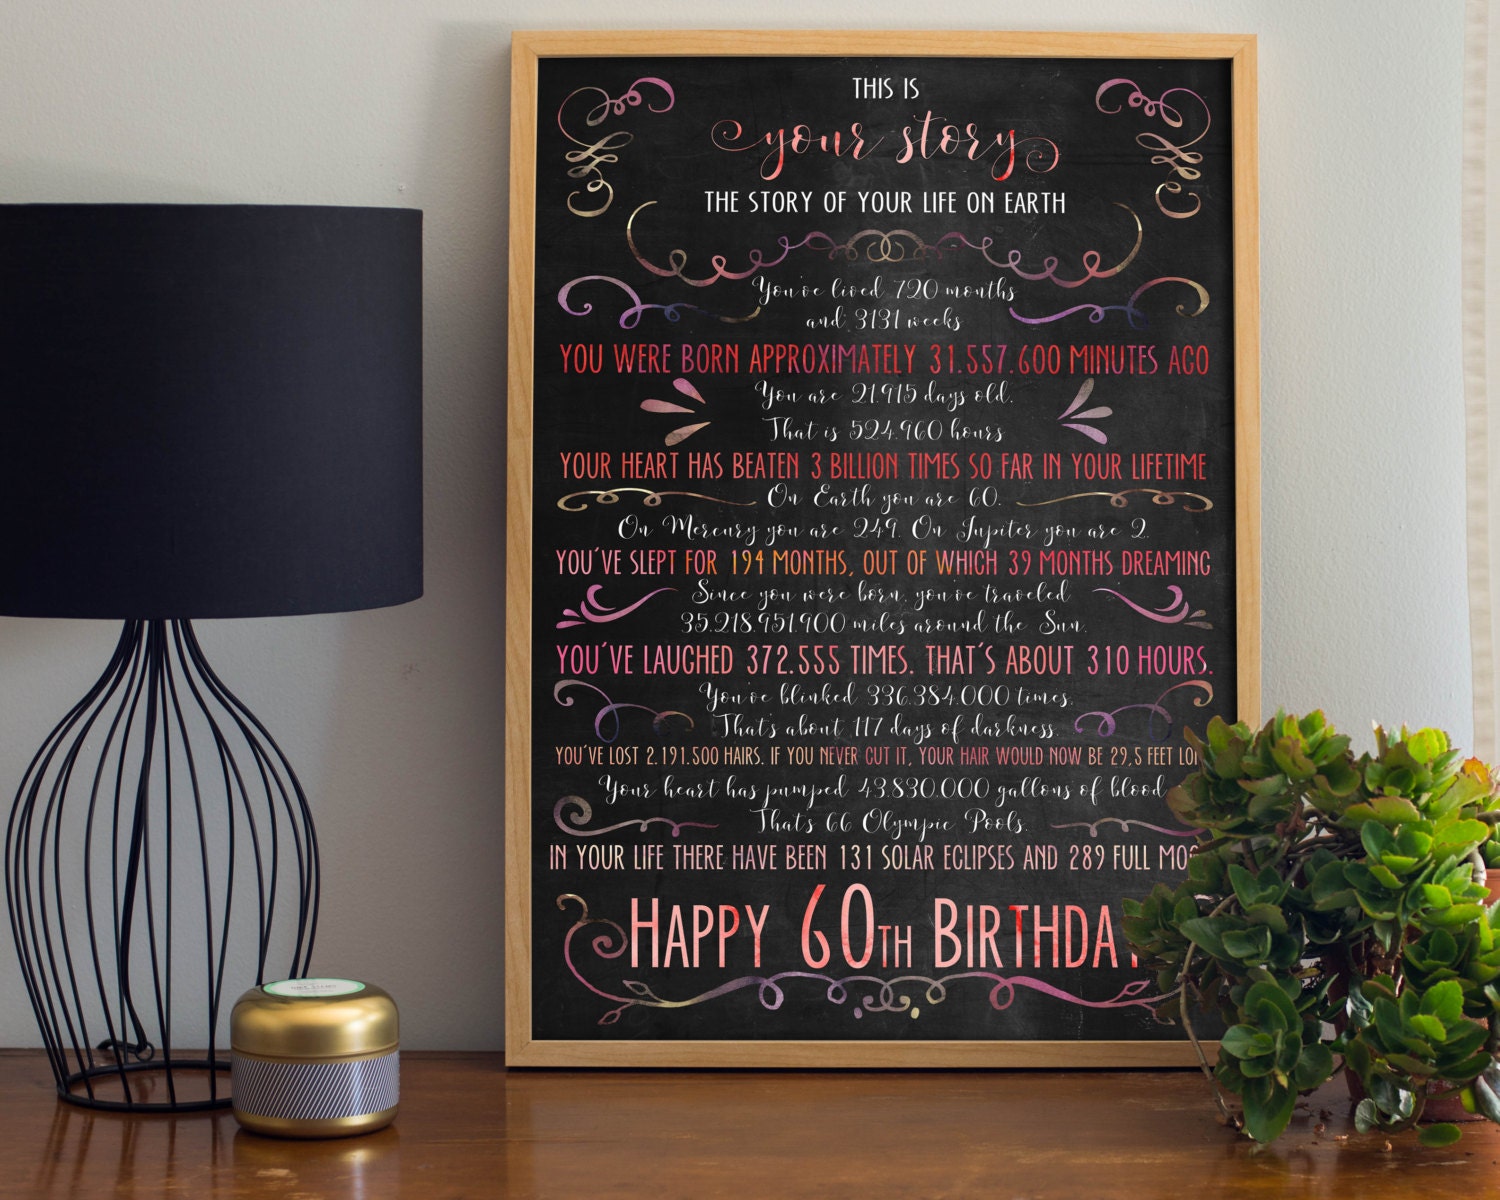 THIS IS
your story
THE STORY OF YOUR LIFE ON EARTH
You've lived 720 months
and 3131 weeks
YOU WERE BORN APPROXIMATELY 31.557.600 MINUTES AGO
You are 21.915 days old.
That is 524.960 hours
YOUR HEART HAS BEATEN 3 BILLION TIMES SO FAR IN YOUR LIFETIME
On Earth you are 60.
On Mercury you are 249. On Jupiter you are 2.
YOU'VE SLEPT FOR 194 MONTHS, OUT OF WHICH 39 MONTHS DREAMING
Since you were born, you've traveled
35.218.951.900 miles around the Sun.
YOU'VE LAUGHED 372.555 TIMES. THAT'S ABOUT 310 HOURS.
You've blinked 336.384.000 times.
That's about 117 days of darkness
YOU'VE LOST 2.191.500 HAIRS. IF YOU NEVER CUT IT, YOUR HAIR WOULD NOW BE 29,5 FEET LO
Your heart has pumped 43.830.000 gallons of blood
That's 66 Olympic Pools.
IN YOUR LIFE THERE HAVE BEEN 131 SOLAR ECLIPSES AND 289 FULL MO
HAPPY 60TH BIRTHDA